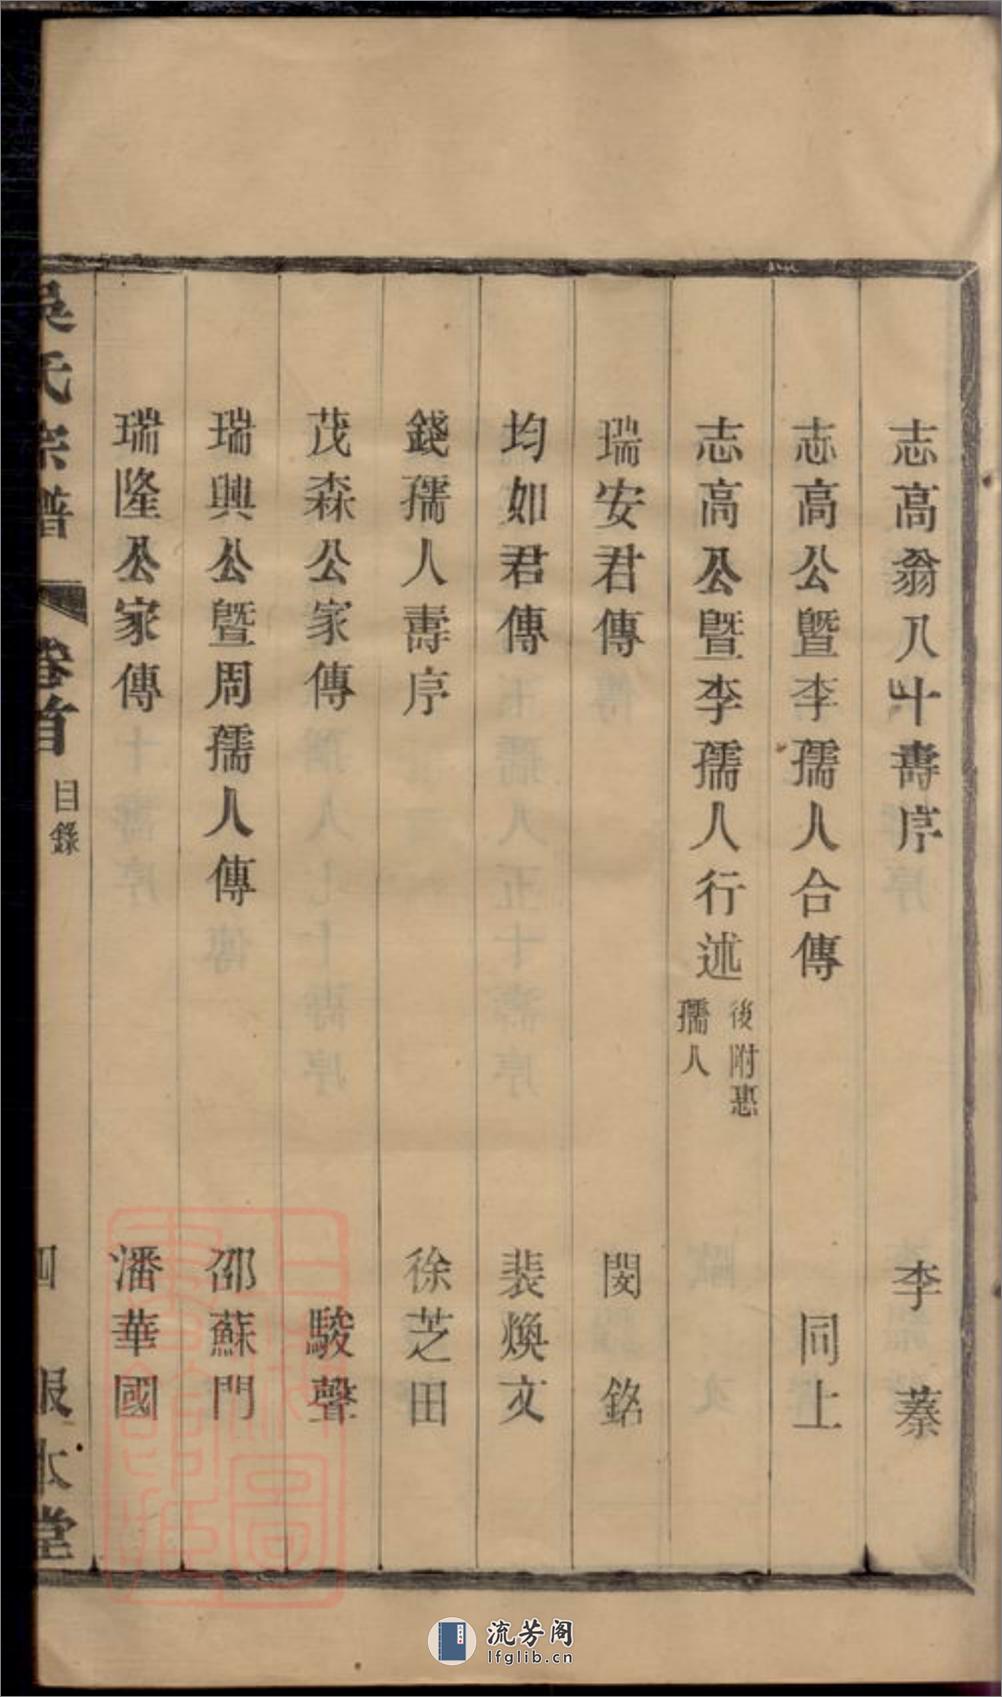 志高翁八十壽序 李蓁
志高公暨李孺人合傳 同上
志高公暨李孺人行述 後附惠孺人
瑞安君傳 閔銘
均如君傳 裴煥文
錢孺人壽序 徐芝田
茂森公家傳 駿聲
瑞興公暨周孺人傳 邵蘇門
瑞隆公家傳 潘華國
吳氏宗譜 卷首 目錄 四 報本堂
上海圖書館藏
流芳阁
lfglib.cn